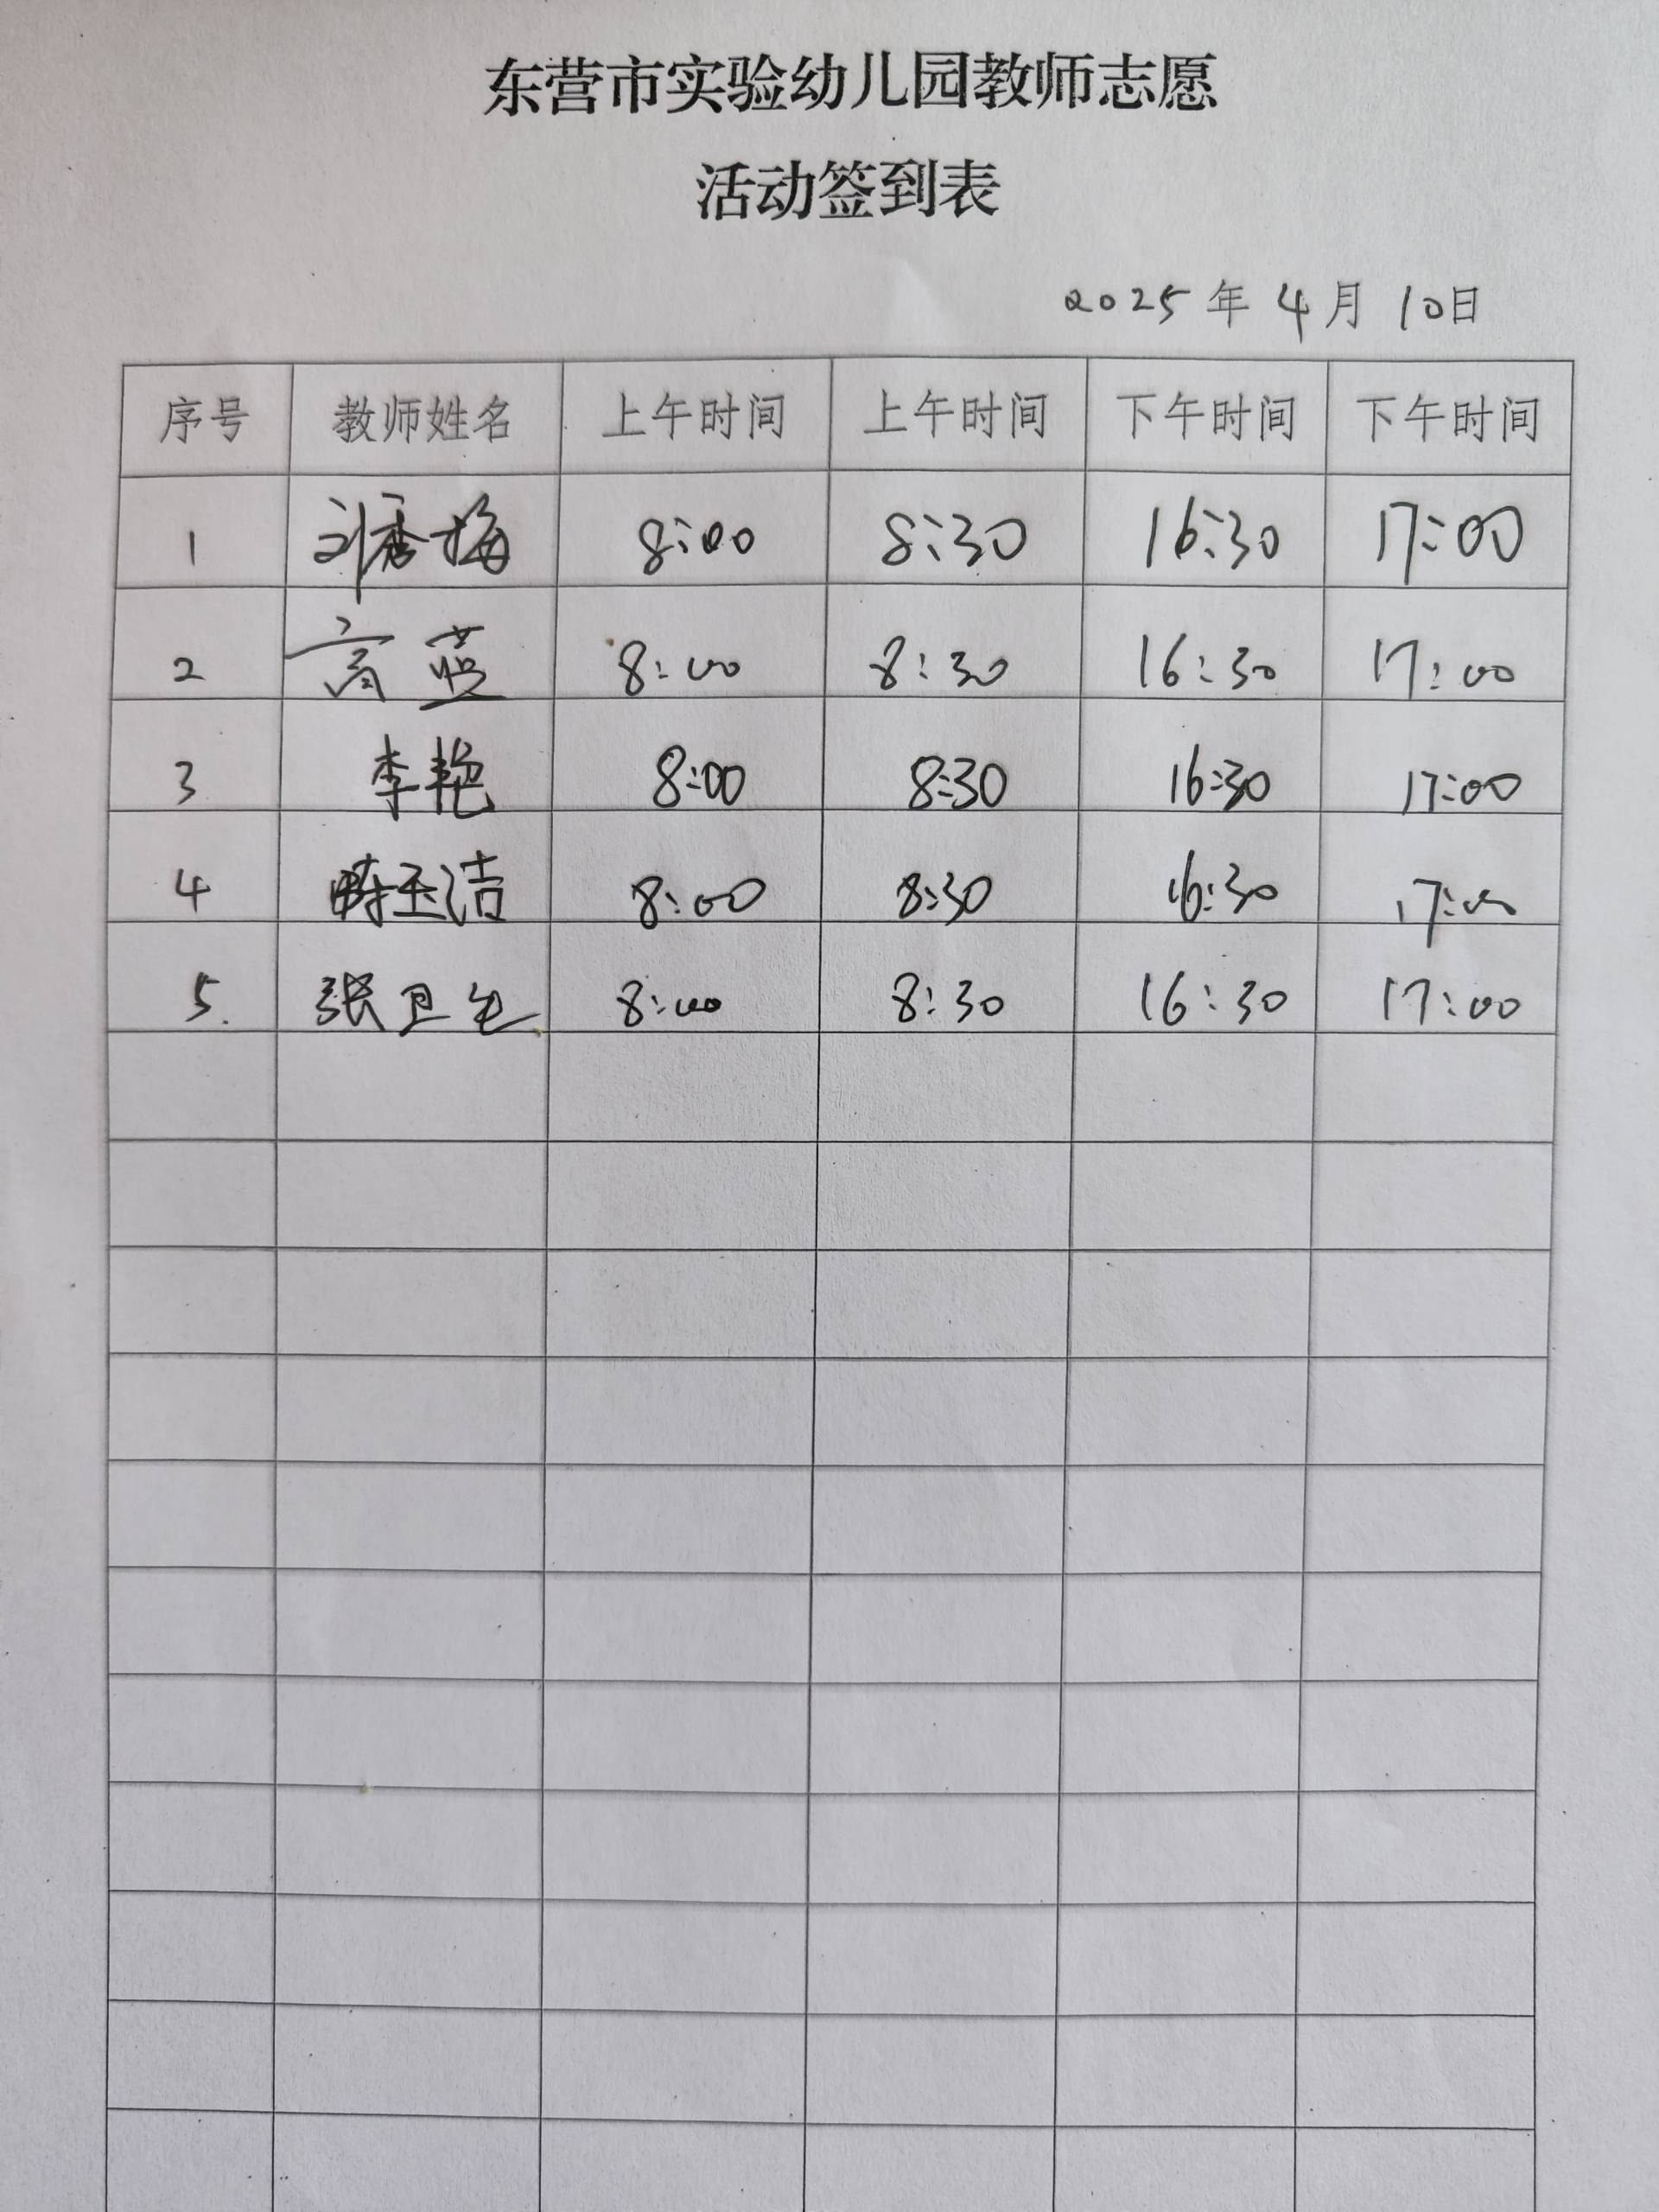 东营市实验幼儿园教师志愿
活动签到表
2025年4月10日
序号 教师姓名 上午时间 上午时间 下午时间 下午时间
1 刘秀梅 8:00 8:30 16:30 17:00
2 高蓝 8:00 8:30 16:30 17:00
3 李艳 8:00 8:30 16:30 17:00
4 玉洁 8:00 8:30 16:30 17:00
5. 张卫 8:00 8:30 16:30 17:00